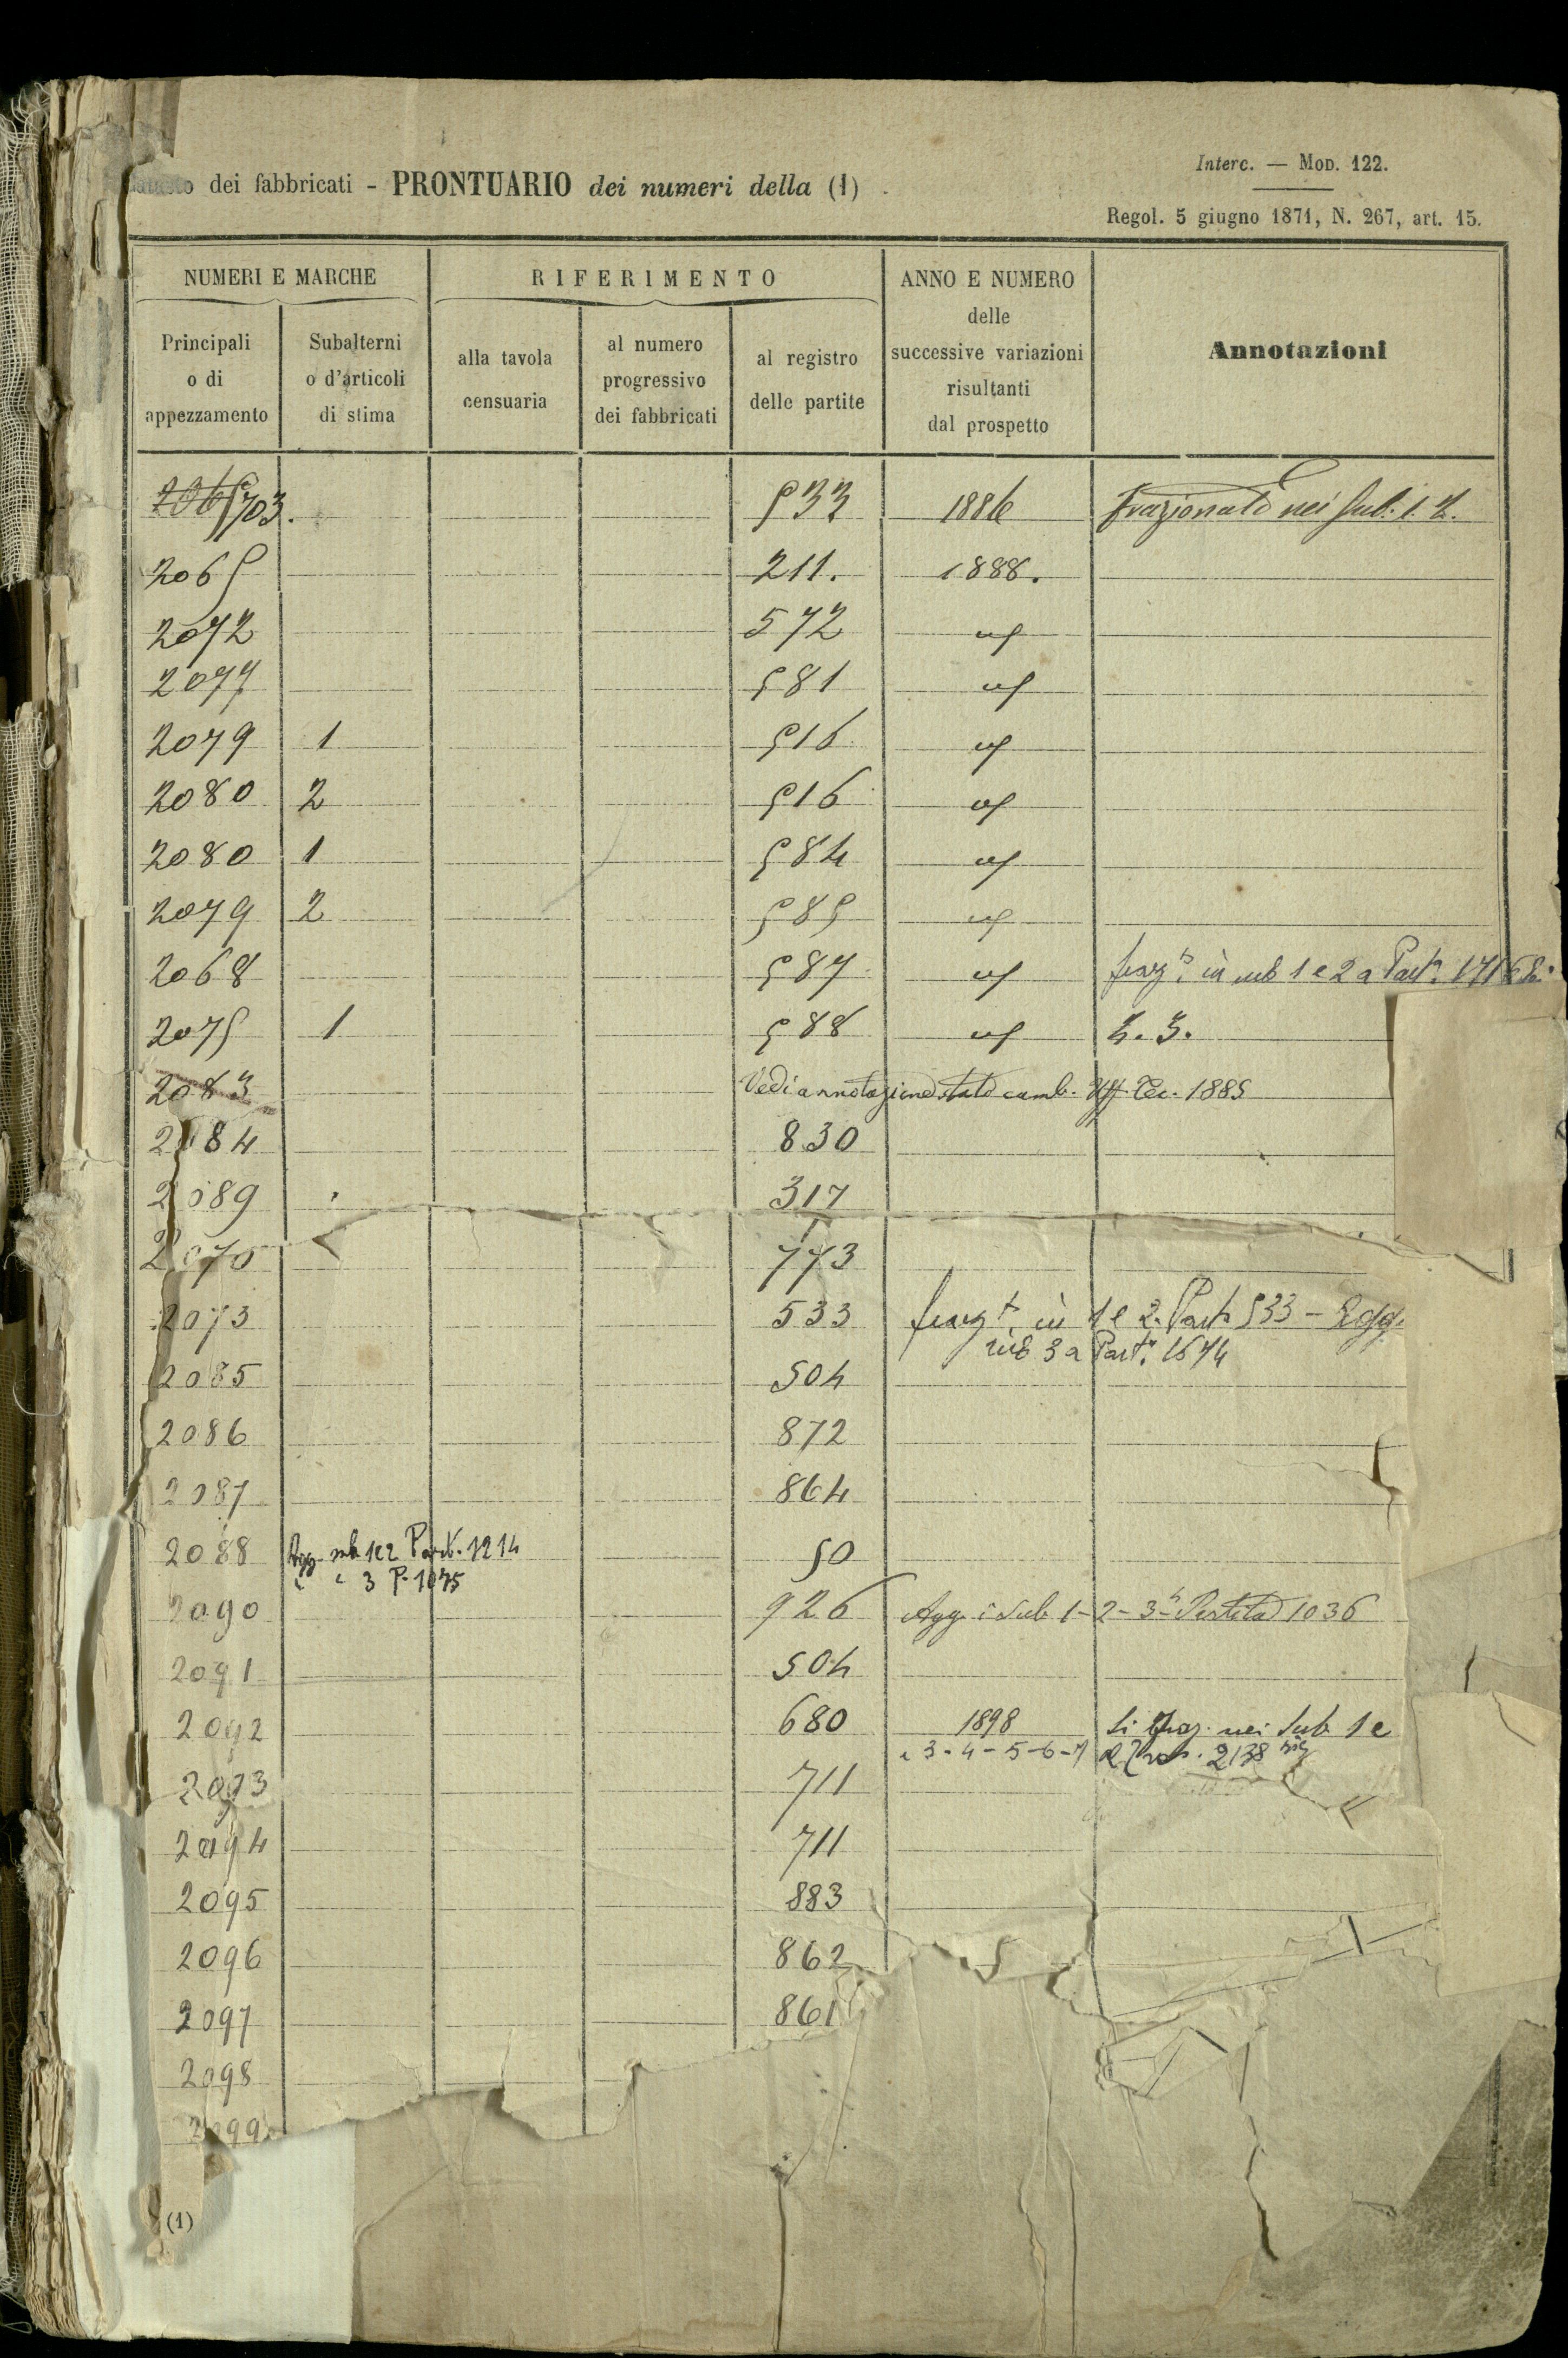 dei fabbricati - PRONTUARIO dei numeri della (1)
Interc. — MOD. 122.
Regol. 5 giugno 1871, N. 267, art. 15.
NUMERI E MARCHE
RIFERIMENTO
ANNO E NUMERO
delle
successive variazioni
risultanti
dal prospetto
Annotazioni
Principali
o di
appezzamento
Subalterni
o d'articoli
di stima
alla tavola
censuaria
al numero
progressivo
dei fabbricati
al registro
delle partite
703. 533 1886 frazionato nei sub. 1. 2.
2065 211. 1888.
2072 572 "
2077 581 "
2079 1 516 "
2080 2 516 "
2080 1 584 "
2079 2 585 "
2068 587 " in sub 1 e 2 a Part.
2075 1 588 "
2083 Vedi annotazione stato camb. Uff. Tec. 1885
2084 830
2089 317
2070 773
2073 533 in 1 e 2. Part. 533 - Agg.
sub 3 a Part. 1674
2085 504
2086 872
2087 864
2088 Agg. sub 1 e 2 Part. 1214 50
" " 3 P. 1075
2090 926 Agg. i Sub 1-2-3 Partita 1036
2091 504
2092 680 1898 Si fraz. nei Sub 1 e
e 3-4-5-6-7 2 2138
2093 711
2094 711
2095 883
2096 862
2097 861
2098
2099
(1)